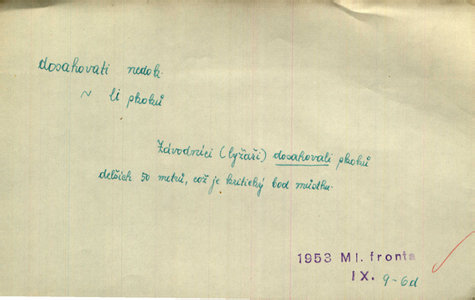 dosahovati nedok.
~ li skoků
Závodníci (lyžaři) dosahovali skoků
delších 50 metrů, což je kritický bod můstku.
1953 Ml. fronta
IX. 9-6d